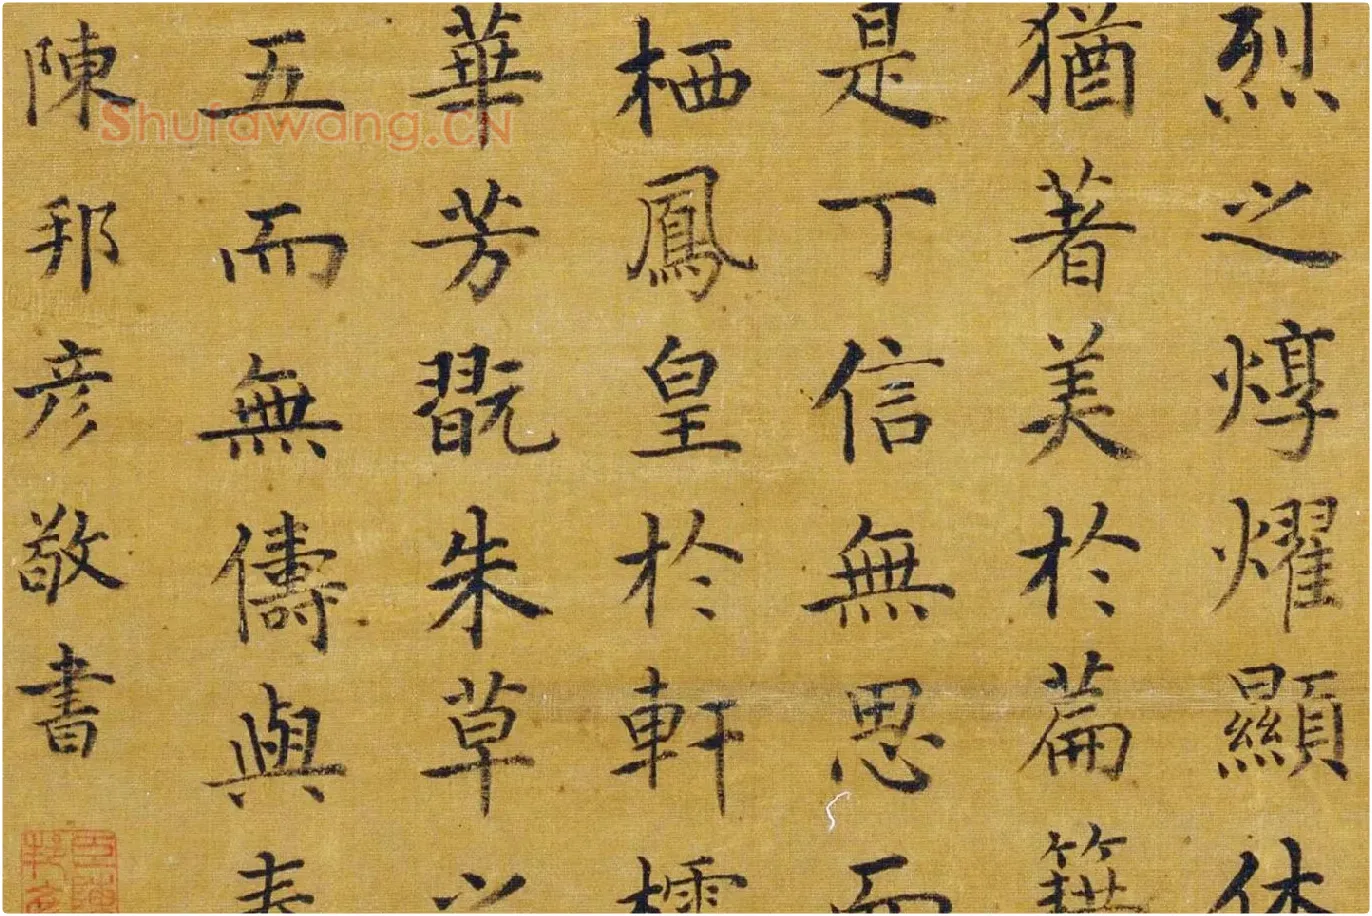 烈之焞耀顯休
猶著美於萹籍
是丁信無思而
栖鳳皇於軒
華芳翫朱草之
五而無儔與
陳邦彦敬書
Shufawang.CN